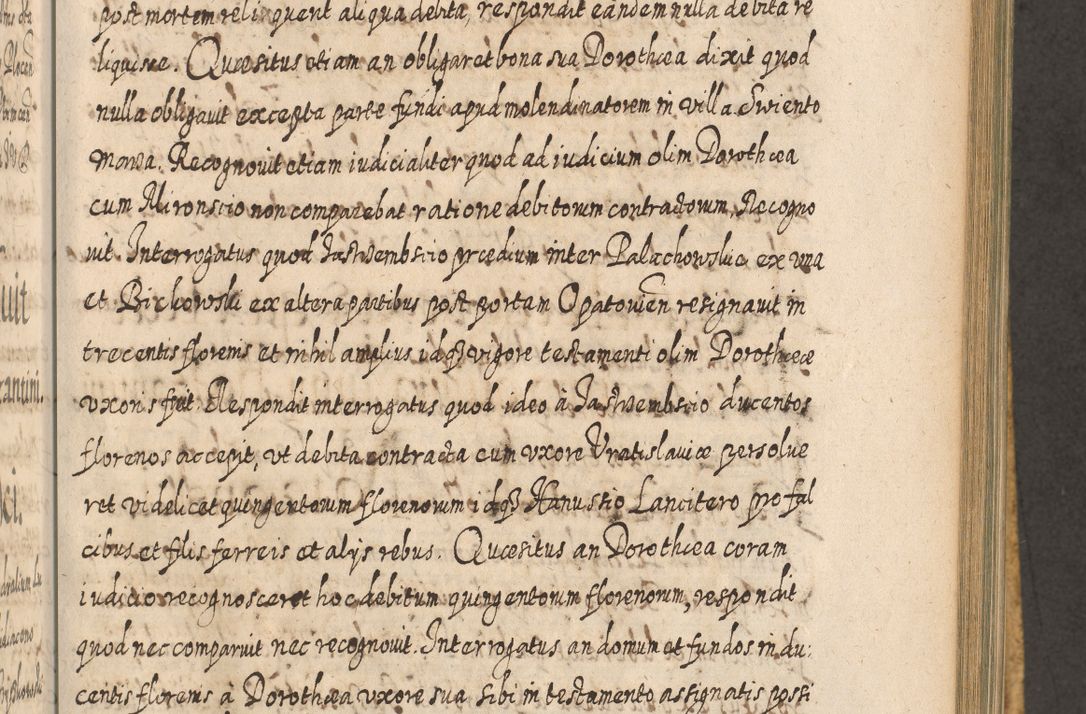 post mortem reliquent aliqua debita, respondit eandem nulla debita re
liquisse. Quæsitus etiam an obligaret bona sua Dorothæa dixit quod
nulla obligauit excepta parte fundi apud molendinatorem in villa Swiento
mowa. Recognouit etiam iudicialiter quod ad iudicium olim Dorothæa
cum Mironscio non comparebat ratione debitorum contractorum, Recogno
uit. Interrogatus quod Jastrzembscio prædium inter Palachowskie ex vna
et Bickowski ex altera partibus post portam Opatouien resignauit in
trecentis florenis et nihil amplius idq3 vigore testamenti olim Dorothææ
vxoris fuit. Respondit interrogatus quod ideo à Jastrzembscio ducentos
florenos accepit, vt debita contracta cum vxore Vratislauiæ persolue
ret videlicet quingentorum florenorum idq3 Hanussio Lancitero pro fal
cibus et filis ferreis et alijs rebus. Quæsitus an Dorothæa coram
iudicio recognosceret hoc debitum quingentorum florenorum, respondit
quod nec comparuit nec recognouit. Interrogatus an domum et fundos in du:
centis florenis à Dorothæa vxore sua sibi in testamento assignatis possi